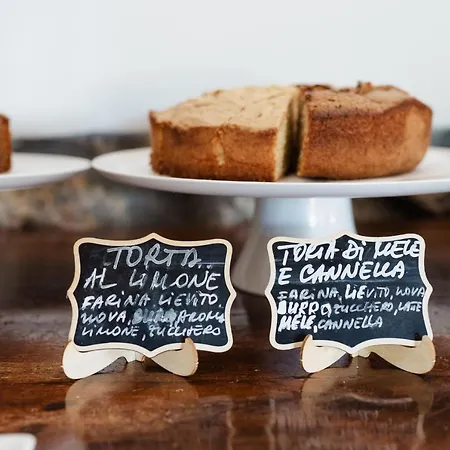 TORTA
AL LIMONE
FARINA, LIEVITO,
UOVA, BURRO, AROMA
LIMONE, ZUCCHERO
TORTA DI MELE
E CANNELLA
FARINA, LIEVITO, UOVA
BURRO, ZUCCHERO, LATTE
MELE, CANNELLA